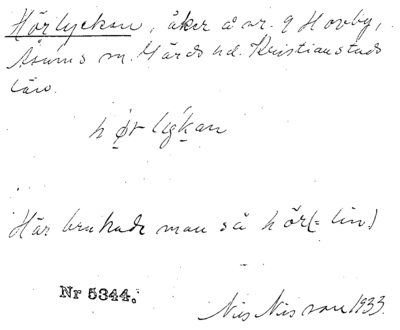 Hörlyckan, åker å nr. 9 Hovby,
Åsums sn. Gärds hd. Kristianstads
län.
hø̨r lykan
Här brukade man så hör (= lin)
Nr 5344.
Nils Nilsson 1933.